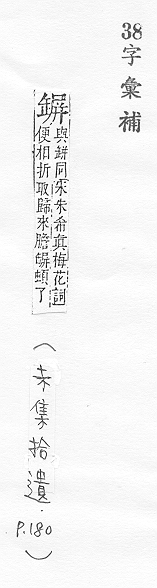 38字彙補
鎼與缾同宋朱希真梅花詞
便相折取歸來膽缾頓了
(未集拾遺.P.180)